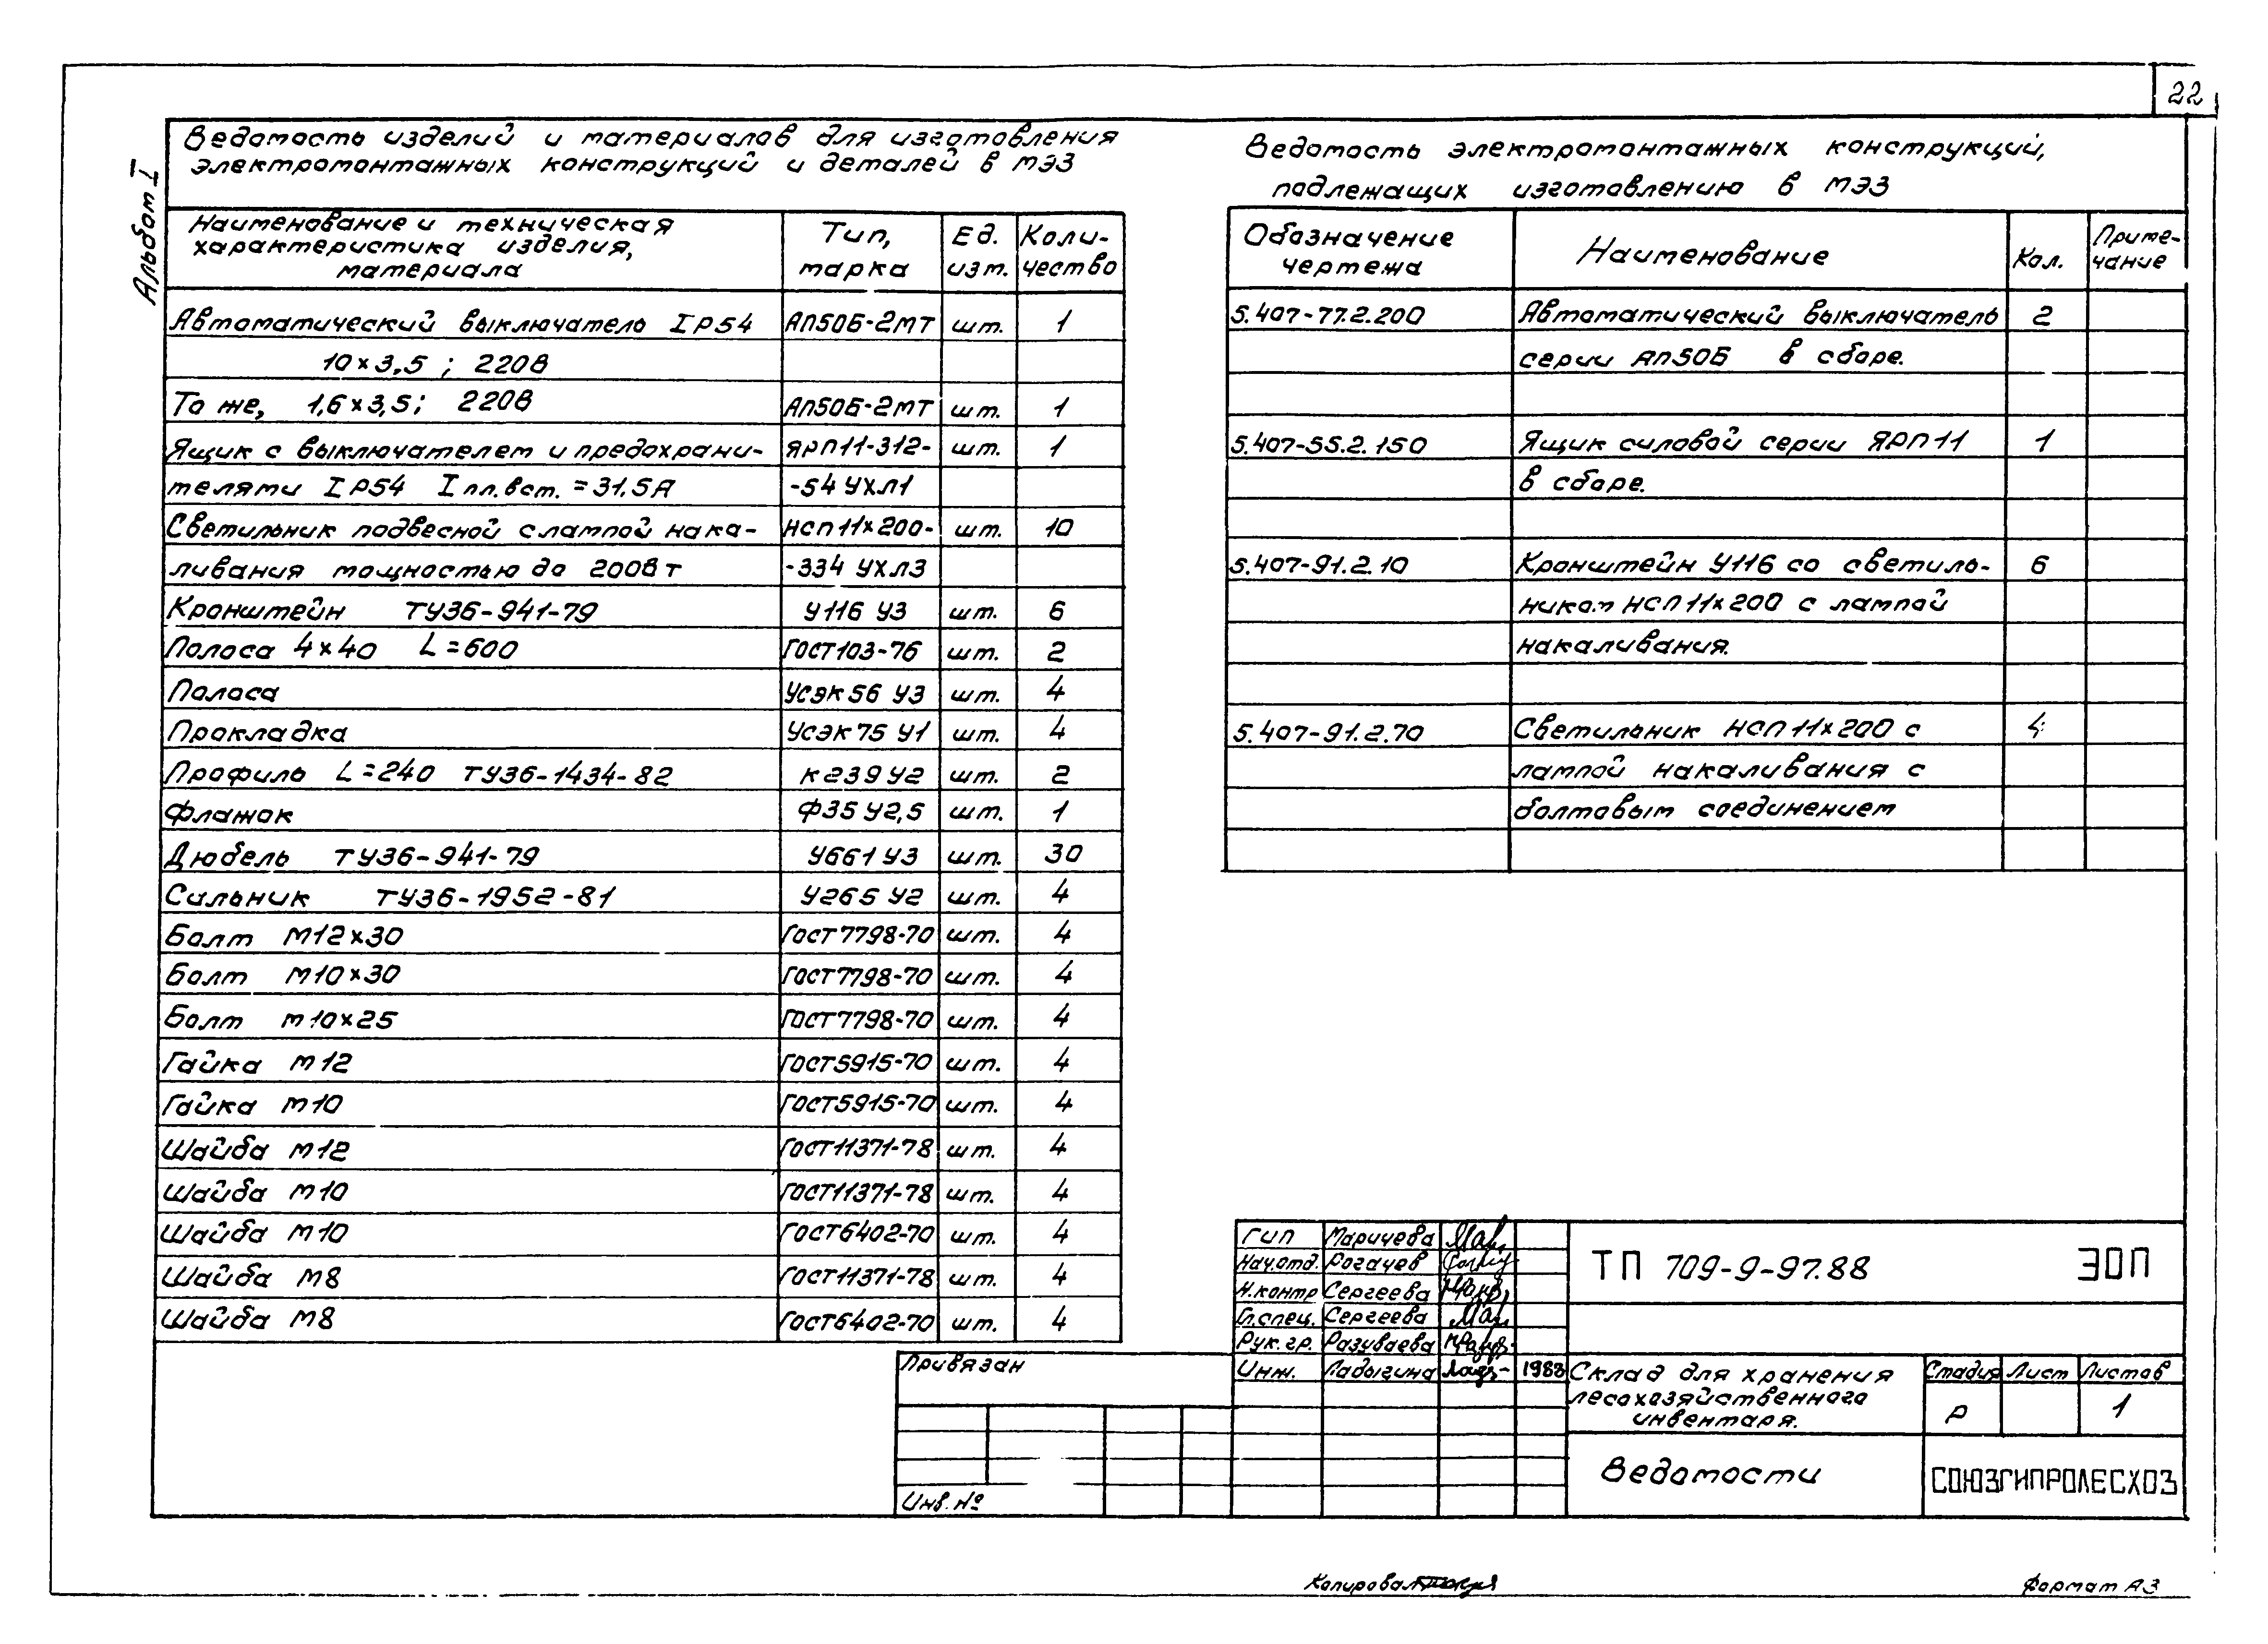 22
Альбом I
Ведомость изделий и материалов для изготовления
электромонтажных конструкций и деталей в МЭЗ
Наименование и техническая характеристика изделия, материала | Тип, марка | Ед. изм. | Коли-чество
Автоматический выключатель IP54 | АП50Б-2МТ | шт. | 1
10×3,5 ; 220В
То же, 1,6×3,5; 220В | АП50Б-2МТ | шт. | 1
Ящик с выключателем и предохрани- | ЯРП11-312- | шт. | 1
телями IP54 I пл.вст. = 31.5А | -54 УХЛ1
Светильник подвесной с лампой нака- | НСП11×200- | шт. | 10
ливания мощностью до 200Вт | -334 УХЛ3
Кронштейн ТУ36-941-79 | У116 У3 | шт. | 6
Полоса 4×40 L=600 | ГОСТ103-76 | шт. | 2
Полоса | УСЭК56 У3 | шт. | 4
Прокладка | УСЭК75 У1 | шт. | 4
Профиль L=240 ТУ36-1434-82 | К239 У2 | шт. | 2
Флажок | Ф35 У2,5 | шт. | 1
Дюбель ТУ36-941-79 | У661 У3 | шт. | 30
Сальник ТУ36-1952-81 | У265 У2 | шт. | 4
Болт М12×30 | ГОСТ7798-70 | шт. | 4
Болт М10×30 | ГОСТ7798-70 | шт. | 4
Болт М10×25 | ГОСТ7798-70 | шт. | 4
Гайка М12 | ГОСТ5915-70 | шт. | 4
Гайка М10 | ГОСТ5915-70 | шт. | 4
Шайба М12 | ГОСТ11371-78 | шт. | 4
Шайба М10 | ГОСТ11371-78 | шт. | 4
Шайба М10 | ГОСТ6402-70 | шт. | 4
Шайба М8 | ГОСТ11371-78 | шт. | 4
Шайба М8 | ГОСТ6402-70 | шт. | 4
Ведомость электромонтажных конструкций,
подлежащих изготовлению в МЭЗ
Обозначение чертежа | Наименование | Кол. | Приме-чание
5.407-77.2.200 | Автоматический выключатель | 2
серии АП50Б в сборе.
5.407-55.2.150 | Ящик силовой серии ЯРП11 | 1
в сборе.
5.407-91.2.10 | Кронштейн У116 со светиль- | 6
ником НСП11×200 с лампой
накаливания.
5.407-91.2.70 | Светильник НСП11×200 с | 4
лампой накаливания с
болтовым соединением
ГИП Маричева
Нач.отд. Рогачев
Н.контр Сергеева
Гл.спец. Сергеева
Рук.гр. Разуваева
Инж. Ладыгина 1988
ТП 709-9-97.88 ЭОП
Склад для хранения
лесохозяйственного
инвентаря.
Стадия Лист Листов
Р 1
Ведомости
СОЮЗГИПРОЛЕСХОЗ
Привязан
Инв.№
Копировал
Формат А3